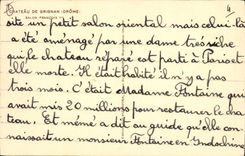 CHATEAU DE GRIGNAN (DRÔME)
SALON FRANÇOIS
4
site un petit salon oriental mais celui-là
a été aménagé par une dame très riche
qui, le chateau réparé est parti à Paris et
elle morte. Il était habité il n'y a pas
trois mois. C'était Madame Fontaine qui
avait mis 20 millions pour restaurer le cha-
teau. Et mémé a dit au guide qu'elle con-
naissait un monsieur Antaine en Indochine